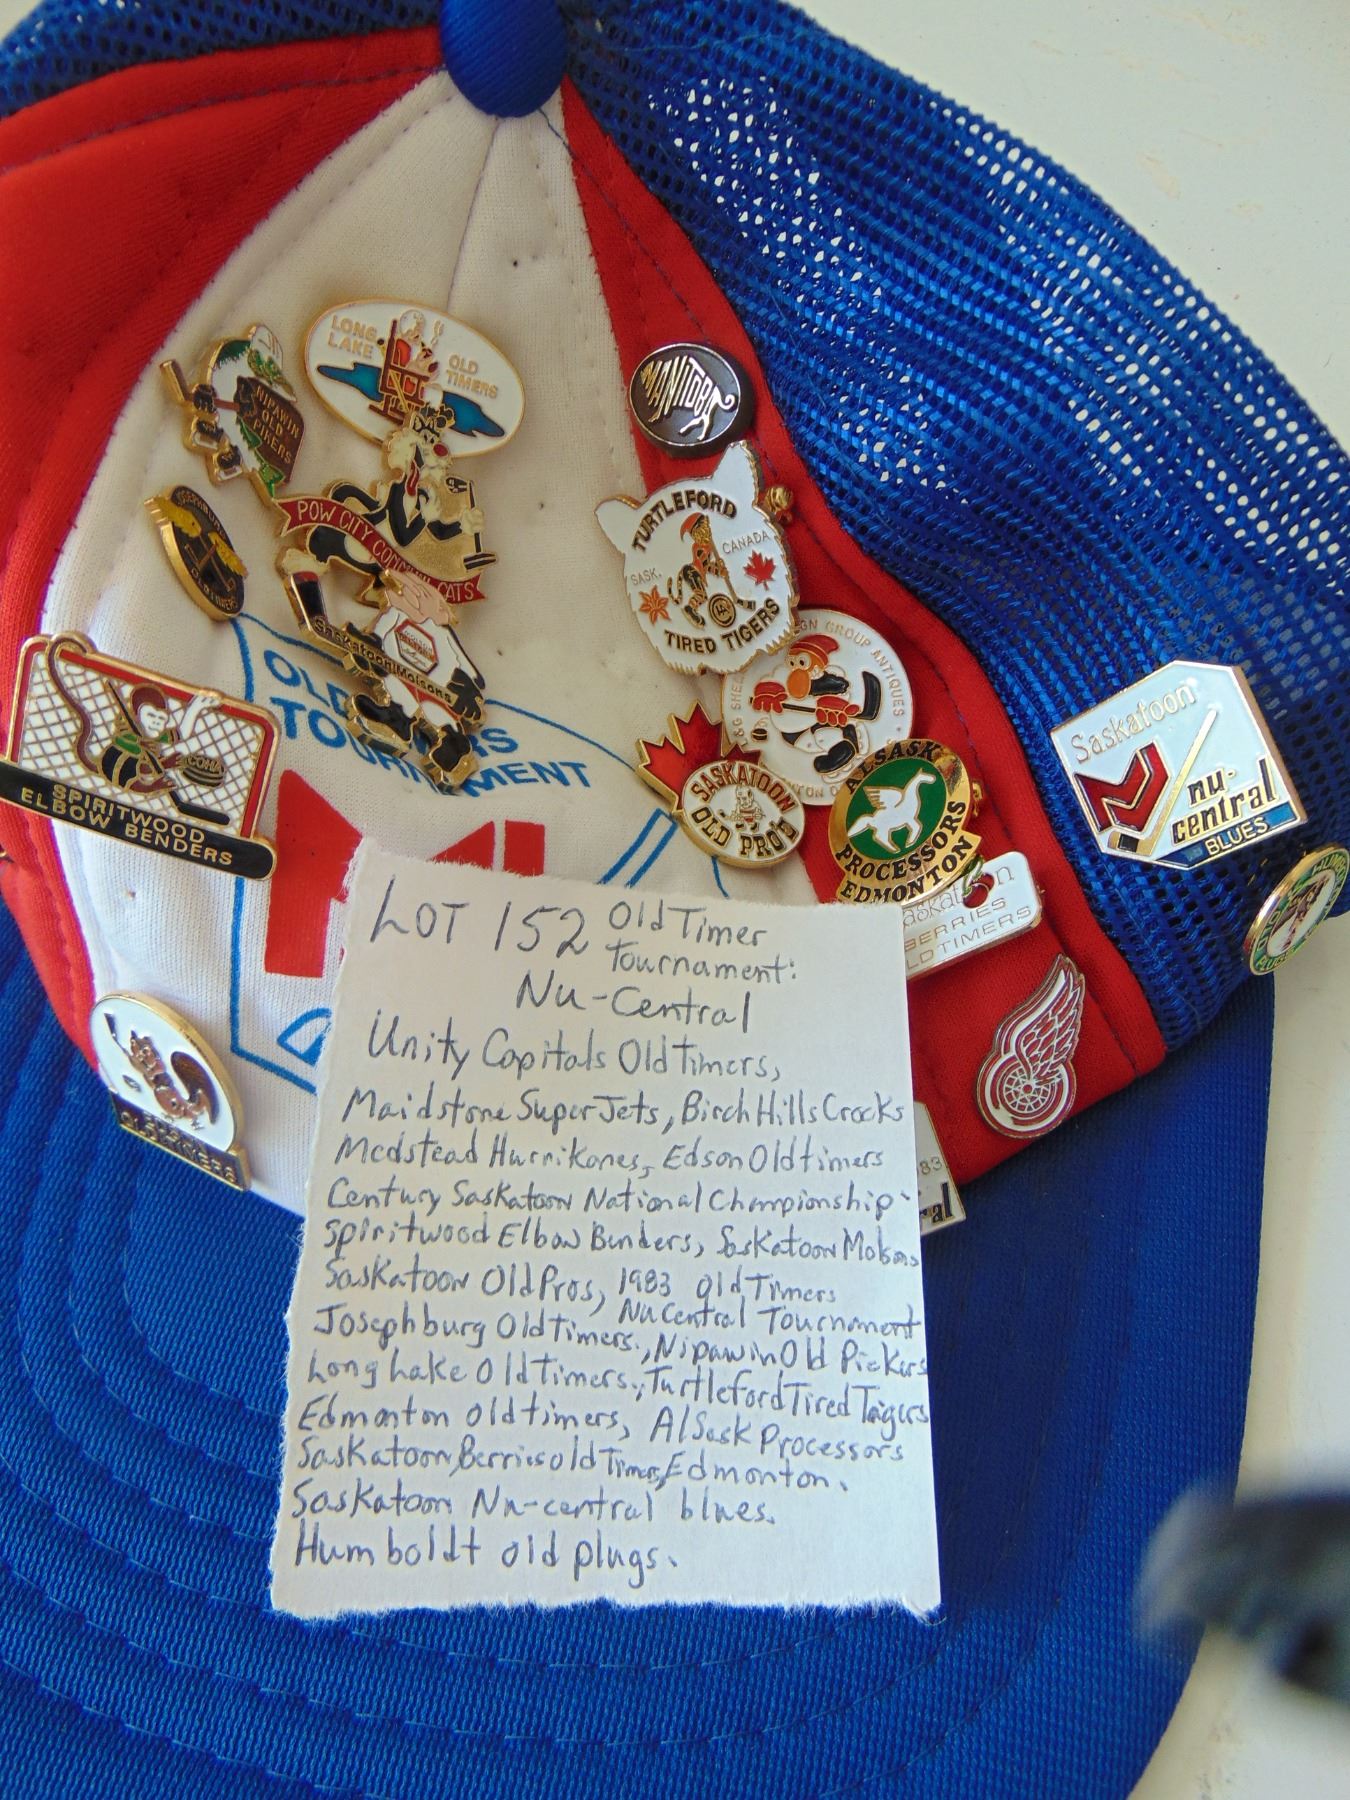 LONG
LAKE
OLD
TIMERS
MANITOBA
NIPAWIN
OLD
PIKERS
POW CITY COMMUNI CATS
TURTLEFORD
SASK.
CANADA
TIRED TIGERS
GN GROUP ANTIQUES
Saskatoon Molsons
OLD
TOURNAMENT
RS
COHA
SPIRITWOOD
ELBOW BENDERS
SASKATOON
OLD PRO'S
ALSASK
PROCESSORS
EDMONTON
Saskatoon
nu-
central
BLUES
BERRIES
LD TIMERS
83
ral
LOT 152 Old Timer
Tournament:
Nu-Central
Unity Capitals Old Timers,
Maidstone Super Jets, Birch Hills Crocks
Medstead Hurrikanes, Edson Oldtimers
Century Saskatoon National Championship
Spiritwood Elbow Benders, Saskatoon Molsons
Saskatoon Old Pros, 1983 Old Timers
NuCentral Tournament
Josephburg Oldtimers., Nipawin Old Pickers
Long Lake Oldtimers., Turtleford Tired Taigers
Edmonton oldtimers, AlSask Processors
Saskatoon, Berries old Timers, Edmonton.
Saskatoon Nu-central blues.
Humboldt old plugs.